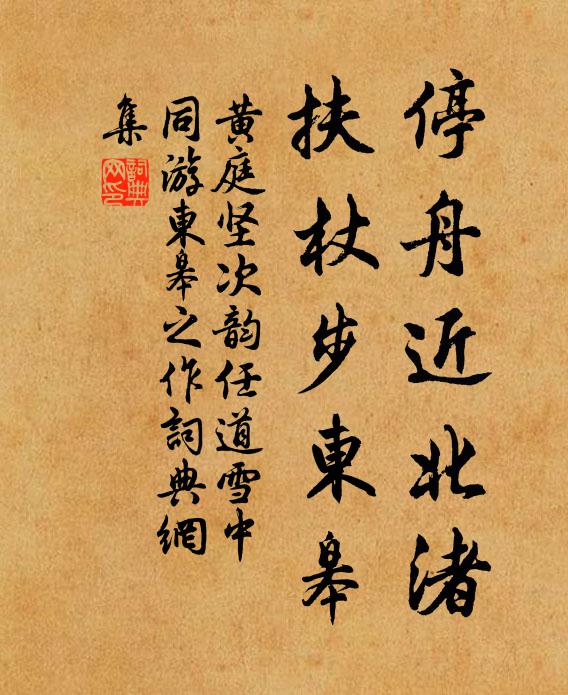 停舟近北渚
扶杖步東皋
黄庭坚次韵任道雪中
同游東皋之作詞典網
集
詞典
网印